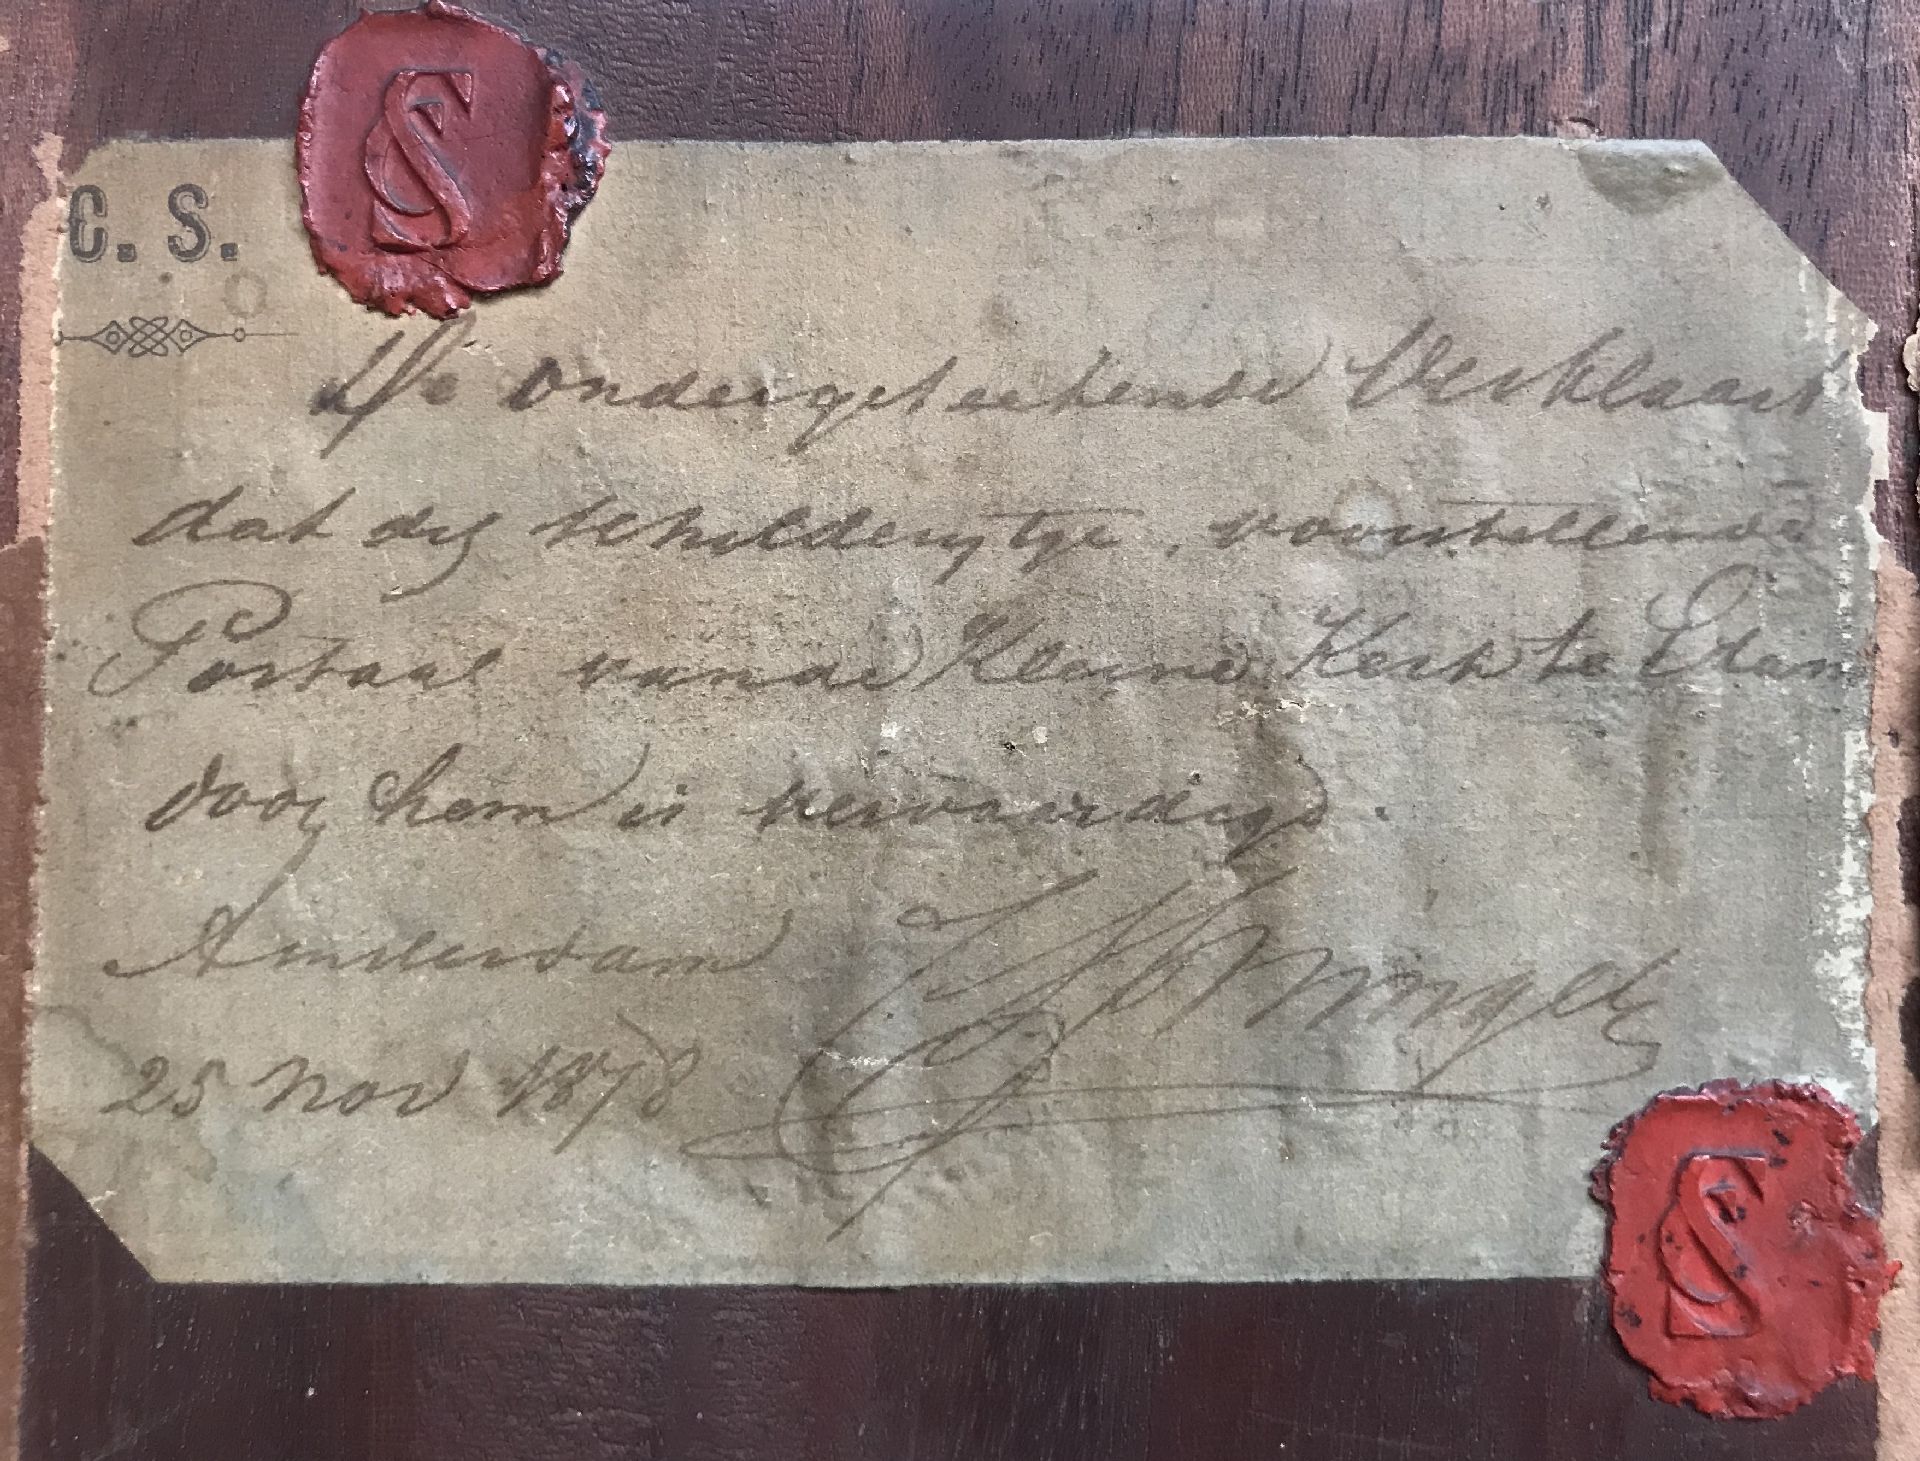 C. S.
De ondergeteekende Verklaart
dat dez schilderijtje, voorstellende
Portaal van de Kleine Kerk te Edam
door hem is vervaardigd.
Amsterdam
25 Nov 1878